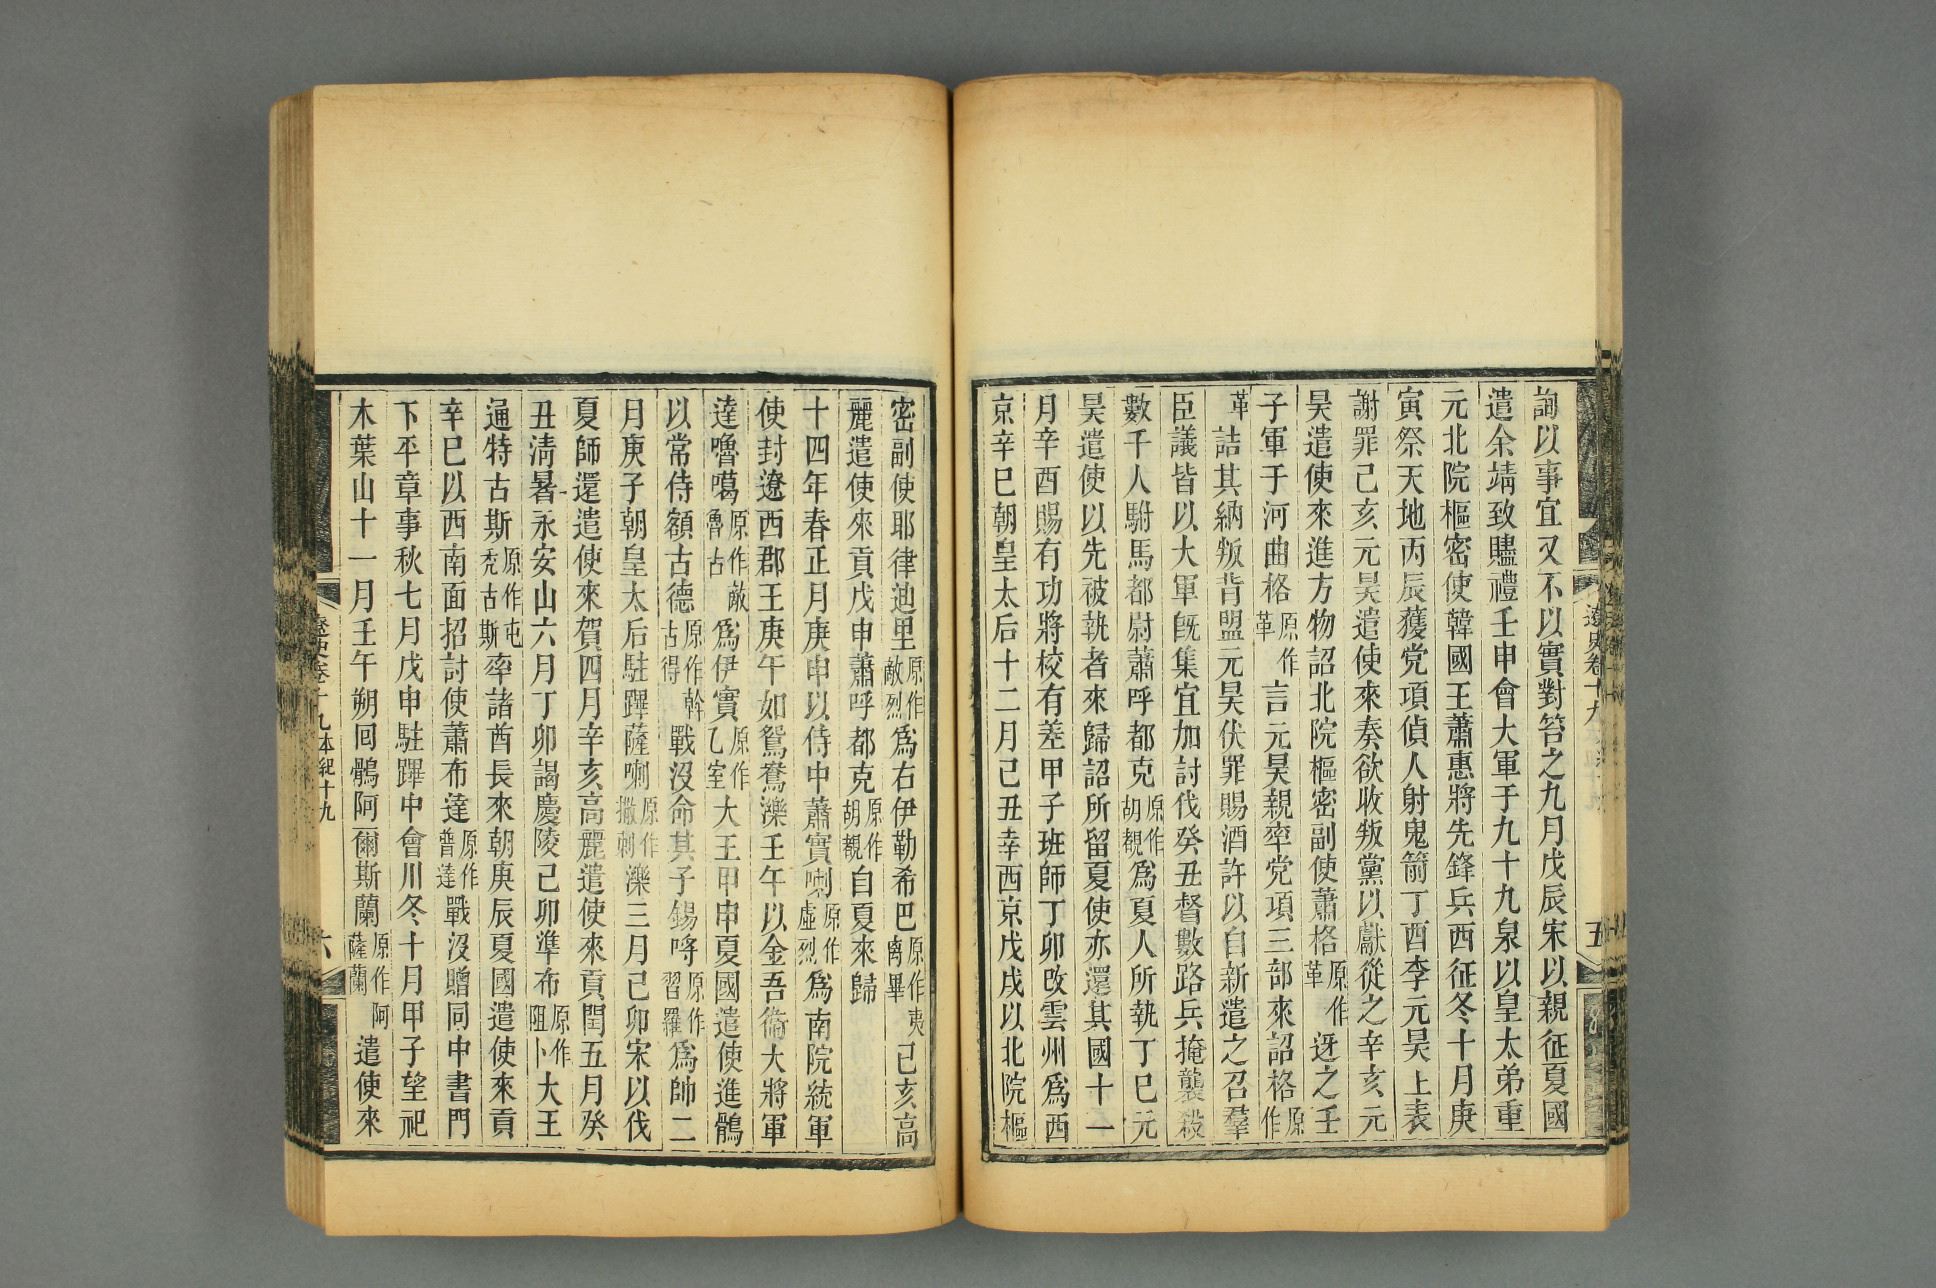 詢以事宜又不以實對答之九月戊辰宋以親征夏國
遣余靖致贐禮壬申會大軍于九十九泉以皇太弟重
元北院樞密使韓國王蕭惠將先鋒兵西征冬十月庚
寅祭天地丙辰獲党項偵人射鬼箭丁酉李元昊上表
謝罪己亥元昊遣使來奏欲收叛黨以獻從之辛亥元
昊遣使來進方物詔北院樞密副使蕭格原作革迓之壬
子軍于河曲格原作革言元昊親率党項三部來詔格原作
革詰其納叛背盟元昊伏罪賜酒許以自新遣之召羣
臣議皆以大軍旣集宜加討伐癸丑督數路兵掩襲殺
數千人駙馬都尉蕭呼都克原作胡覩爲夏人所執丁巳元
昊遣使以先被執者來歸詔所留夏使亦還其國十一
月辛酉賜有功將校有差甲子班師丁卯改雲州爲西
京辛巳朝皇太后十二月己丑幸西京戊戌以北院樞
遼史卷十九
五
密副使耶律迪里原作敵烈爲右伊勒希巴原作夷离畢己亥高
麗遣使來貢戊申蕭呼都克原作胡覩自夏來歸
十四年春正月庚申以侍中蕭實喇原作虛烈爲南院統軍
使封遼西郡王庚午如鴛鴦濼壬午以金吾衞大將軍
達嚕噶原作敵魯古爲伊實原作乙室大王甲申夏國遣使進鶻
以常侍額古德原作斡古得戰沒命其子錫哷原作習羅爲帥二
月庚子朝皇太后駐蹕薩喇原作撒剌濼三月己卯宋以伐
夏師還遣使來賀四月辛亥高麗遣使來貢閏五月癸
丑淸暑永安山六月丁卯謁慶陵己卯準布原作阻卜大王
通特古斯原作屯禿古斯率諸酋長來朝庚辰夏國遣使來貢
辛巳以西南面招討使蕭布達原作普達戰沒贈同中書門
下平章事秋七月戊申駐蹕中會川冬十月甲子望祀
木葉山十一月壬午朔回鶻阿爾斯蘭原作阿薩蘭遣使來
遼史卷十九本紀十九
六